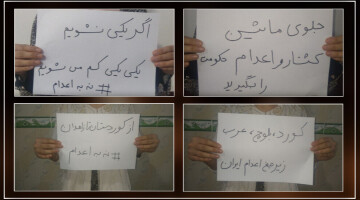 اگر یکی نشویم
یکی یکی کم می شویم
# نه به اعدام
جلوی ماشین
کشتار و اعدام حکومتی
را بگیرید
از کوردستان تا تهران
# نه به اعدام
کورد، بلوچ، عرب
زیر تیغ اعدام ایران